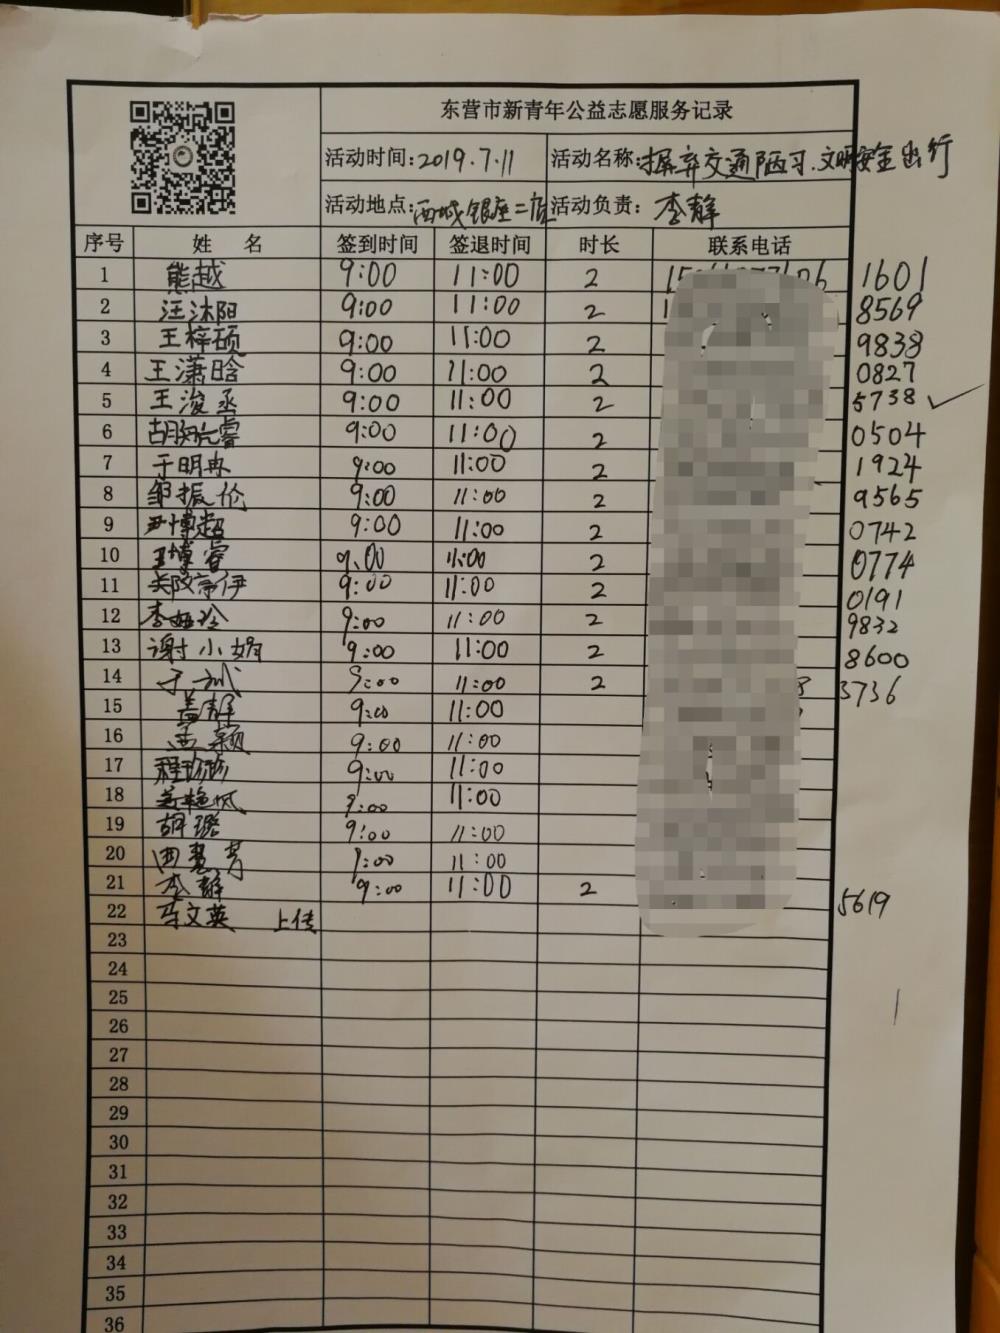 东营市新青年公益志愿服务记录
活动时间:2019.7.11 活动名称:摒弃交通陋习.文明安全出行
活动地点:西城银座二店 活动负责:李静
序号 姓 名 签到时间 签退时间 时长 联系电话
1 熊越 9:00 11:00 2 1601
2 汪沐阳 9:00 11:00 2 8569
3 王梓硕 9:00 11:00 2 9838
4 王潇晗 9:00 11:00 2 0827
5 王浚丞 9:00 11:00 2 5738
6 9:00 11:00 2 0504
7 于明冉 9:00 11:00 2 1924
8 邹振伦 9:00 11:00 2 9565
9 尹博超 9:00 11:00 2 0742
10 王博睿 9:00 11:00 2 0774
11 9:00 11:00 2 0191
12 9:00 11:00 2 9832
13 谢小娟 9:00 11:00 2 8600
14 于斌 9:00 11:00 2 3736
15 盖静 9:00 11:00
16 孟颖 9:00 11:00
17 程珍珍 9:00 11:00
18 9:00 11:00
19 胡璐 9:00 11:00
20 田慧芳 9:00 11:00
21 李静 9:00 11:00 2 5619
22 马文英 上传
23
24
25
26
27
28
29
30
31
32
33
34
35
36